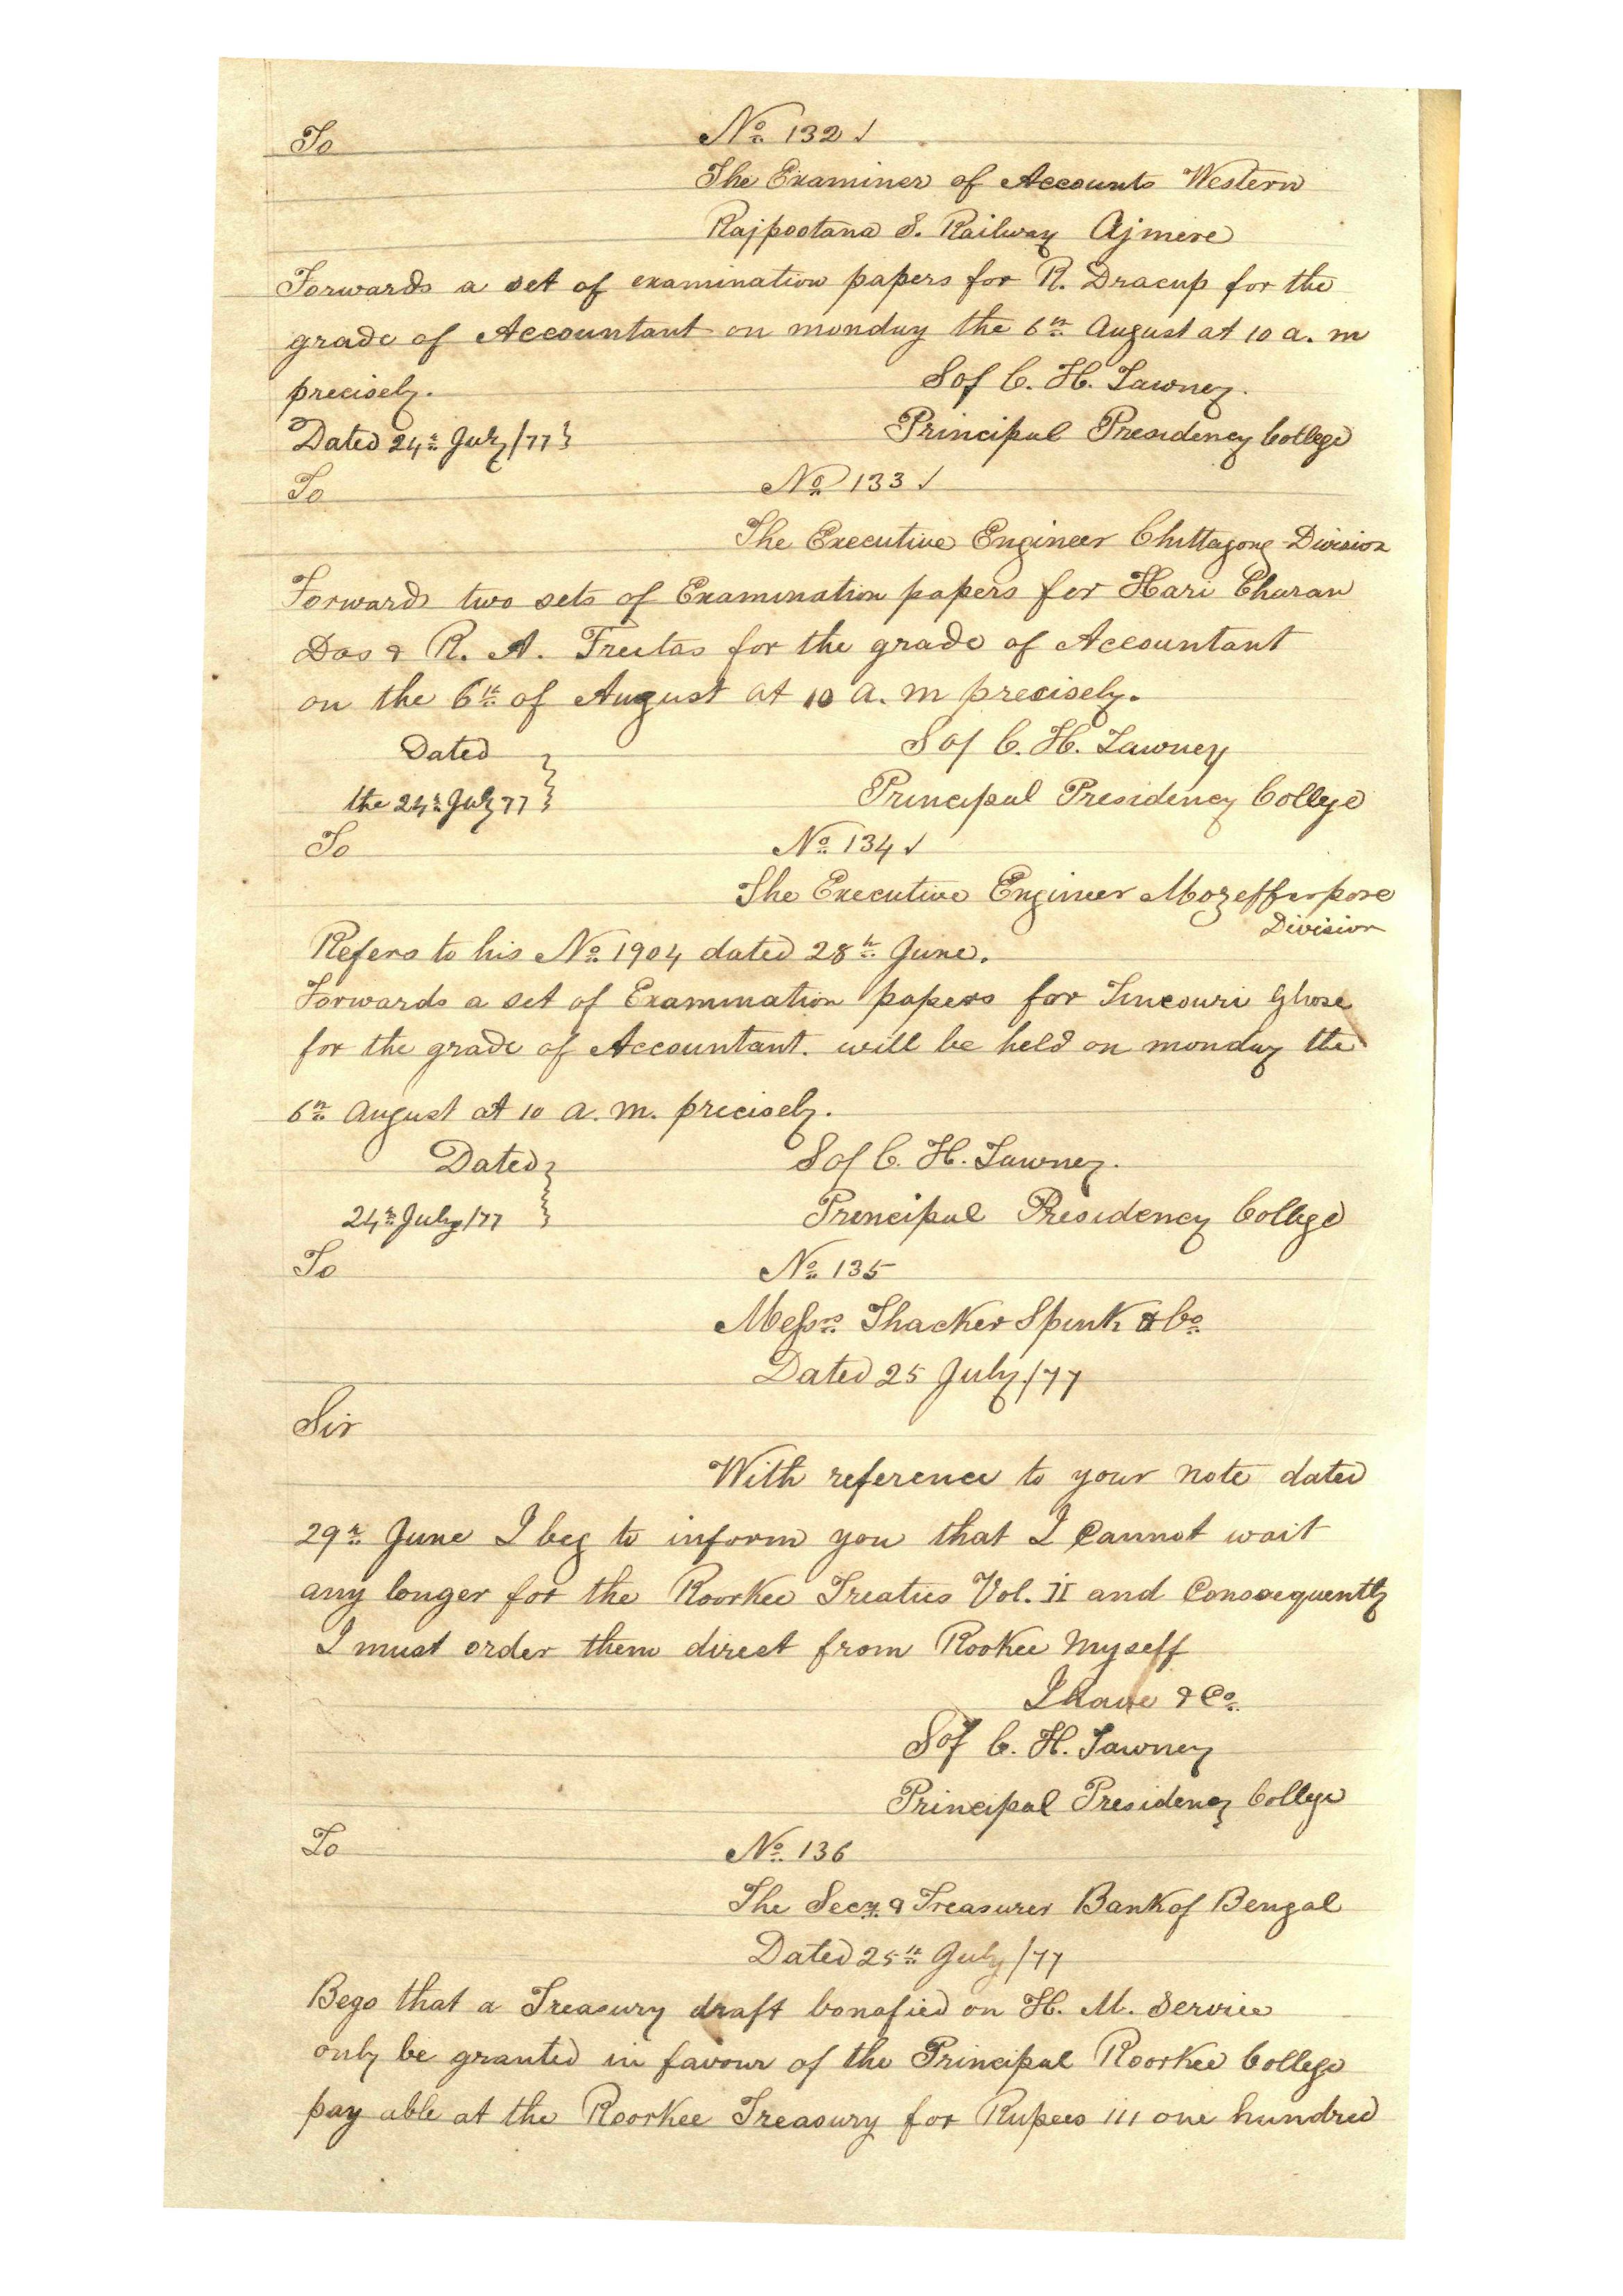 To No. 132 ✓
The Examiner of Accounts Western
Rajpootana S. Railway Ajmere
Forwards a set of examination papers for R. Dracup for the
grade of Accountant on monday the 6th August at 10 a. m
precisely. Sd/ C. H. Tawney.
Dated 24th July/77} Principal Presidency College
To No 133 ✓
The Executive Engineer Chittagong Division
Forwards two sets of Examination papers for Hari Charan
Das & R. A. Freitas for the grade of Accountant
on the 6th of August at 10 a. m precisely.
Dated Sd/ C. H. Tawney
the 24th July 77 } Principal Presidency College
To No. 134 ✓
The Executive Engineer Mozefferpore
Division
Refers to his No. 1904 dated 28th June.
Forwards a set of Examination papers for Tincouri Ghose
for the grade of Accountant. will be held on monday the
6th August at 10 a. m. precisely.
Dated Sd/ C. H. Tawney.
24th July/77 } Principal Presidency College
To No. 135
Messrs. Thacker Spink & Co.
Dated 25 July/77
Sir
With reference to your note dated
29th June I beg to inform you that I Cannot wait
any longer for the Roorkee Treaties Vol. II and Consequently
I must order them direct from Rookee Myself
I have & Co.
Sd/ C. H. Tawney
Principal Presidency College
To No. 136
The Secy. & Treasurer Bank of Bengal
Dated 25th July/77
Begs that a Treasury draft bonafied on H. M. Service
only be granted in favour of the Principal Roorkee College
pay able at the Roorkee Treasury for Rupees 111 one hundred